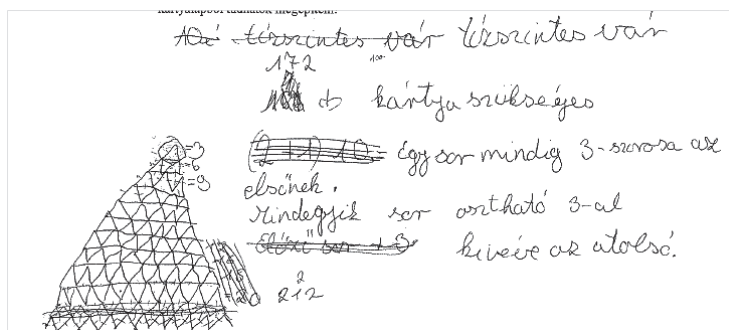 kártyalapból tudnátok megépíteni.
tízszintes vár tízszintes vár
172
db kártya szükséges
(2+1) 10 = Egy sor mindig 3-szorosa az
elsőnek.
=3
6
=9
Mindegyik sor osztható 3-al
Előző sor + 3 kivéve az utolsó.
2
212